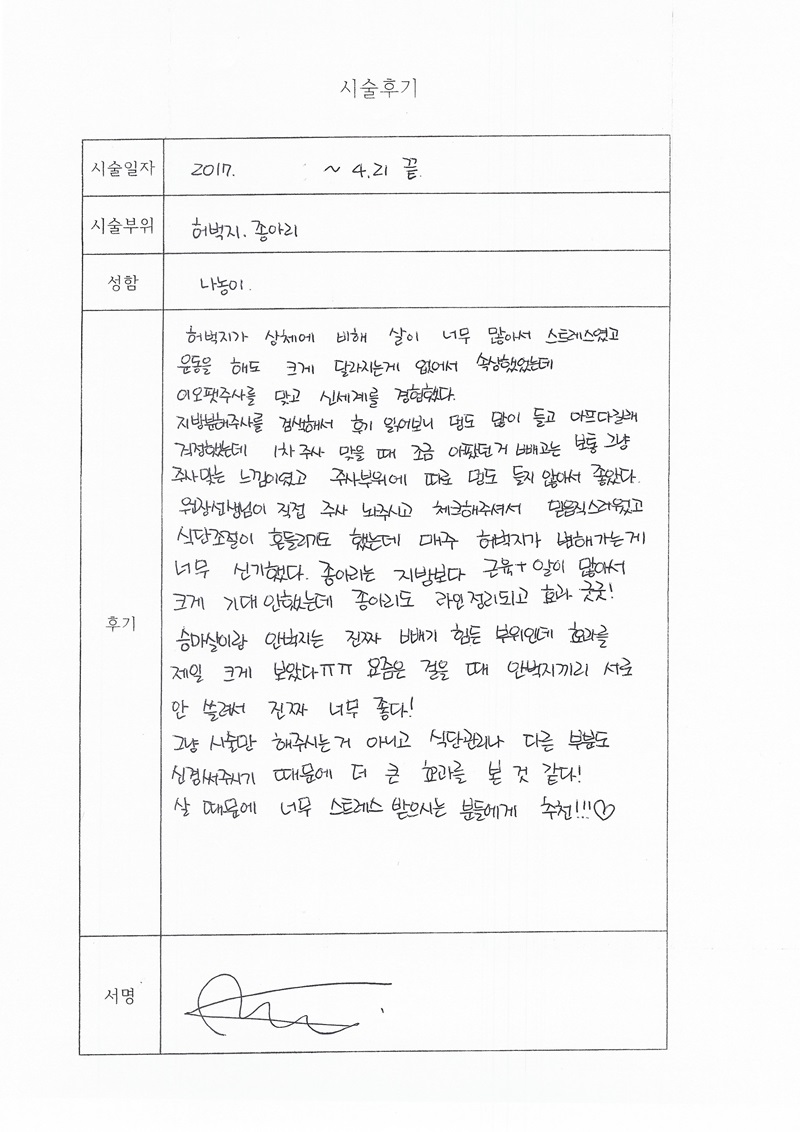 시술후기
시술일자 2017. ~ 4.21 끝.
시술부위 허벅지. 종아리
성함 나농이.
후기
허벅지가 상체에 비해 살이 너무 많아서 스트레스였고
운동을 해도 크게 달라지는게 없어서 속상했었는데
이오팻주사를 맞고 신세계를 경험했다.
지방분해주사를 검색해서 후기 읽어보니 멍도 많이 들고 아프다길래
걱정했는데 1차 주사 맞을 때 조금 아팠던거 빼고는 보통 그냥
주사맞는 느낌이였고 주사부위에 따로 멍도 들지 않아서 좋았다.
원장선생님이 직접 주사 놔주시고 체크해주셔서 믿음직스러웠고
식단조절이 흔들리기도 했는데 매주 허벅지가 변해가는게
너무 신기했다. 종아리는 지방보다 근육+알이 많아서
크게 기대 안했는데 종아리도 라인정리되고 효과 굿굿!
승마살이랑 안벅지는 진짜 빼기 힘든 부위인데 효과를
제일 크게 보았다ㅠㅠ 요즘은 걸을 때 안벅지끼리 서로
안 쓸려서 진짜 너무 좋다!
그냥 시술만 해주시는거 아니고 식단관리나 다른 부분도
신경써주시기 때문에 더 큰 효과를 본 것 같다!
살 때문에 너무 스트레스 받으시는 분들에게 추천!!!♡
서명